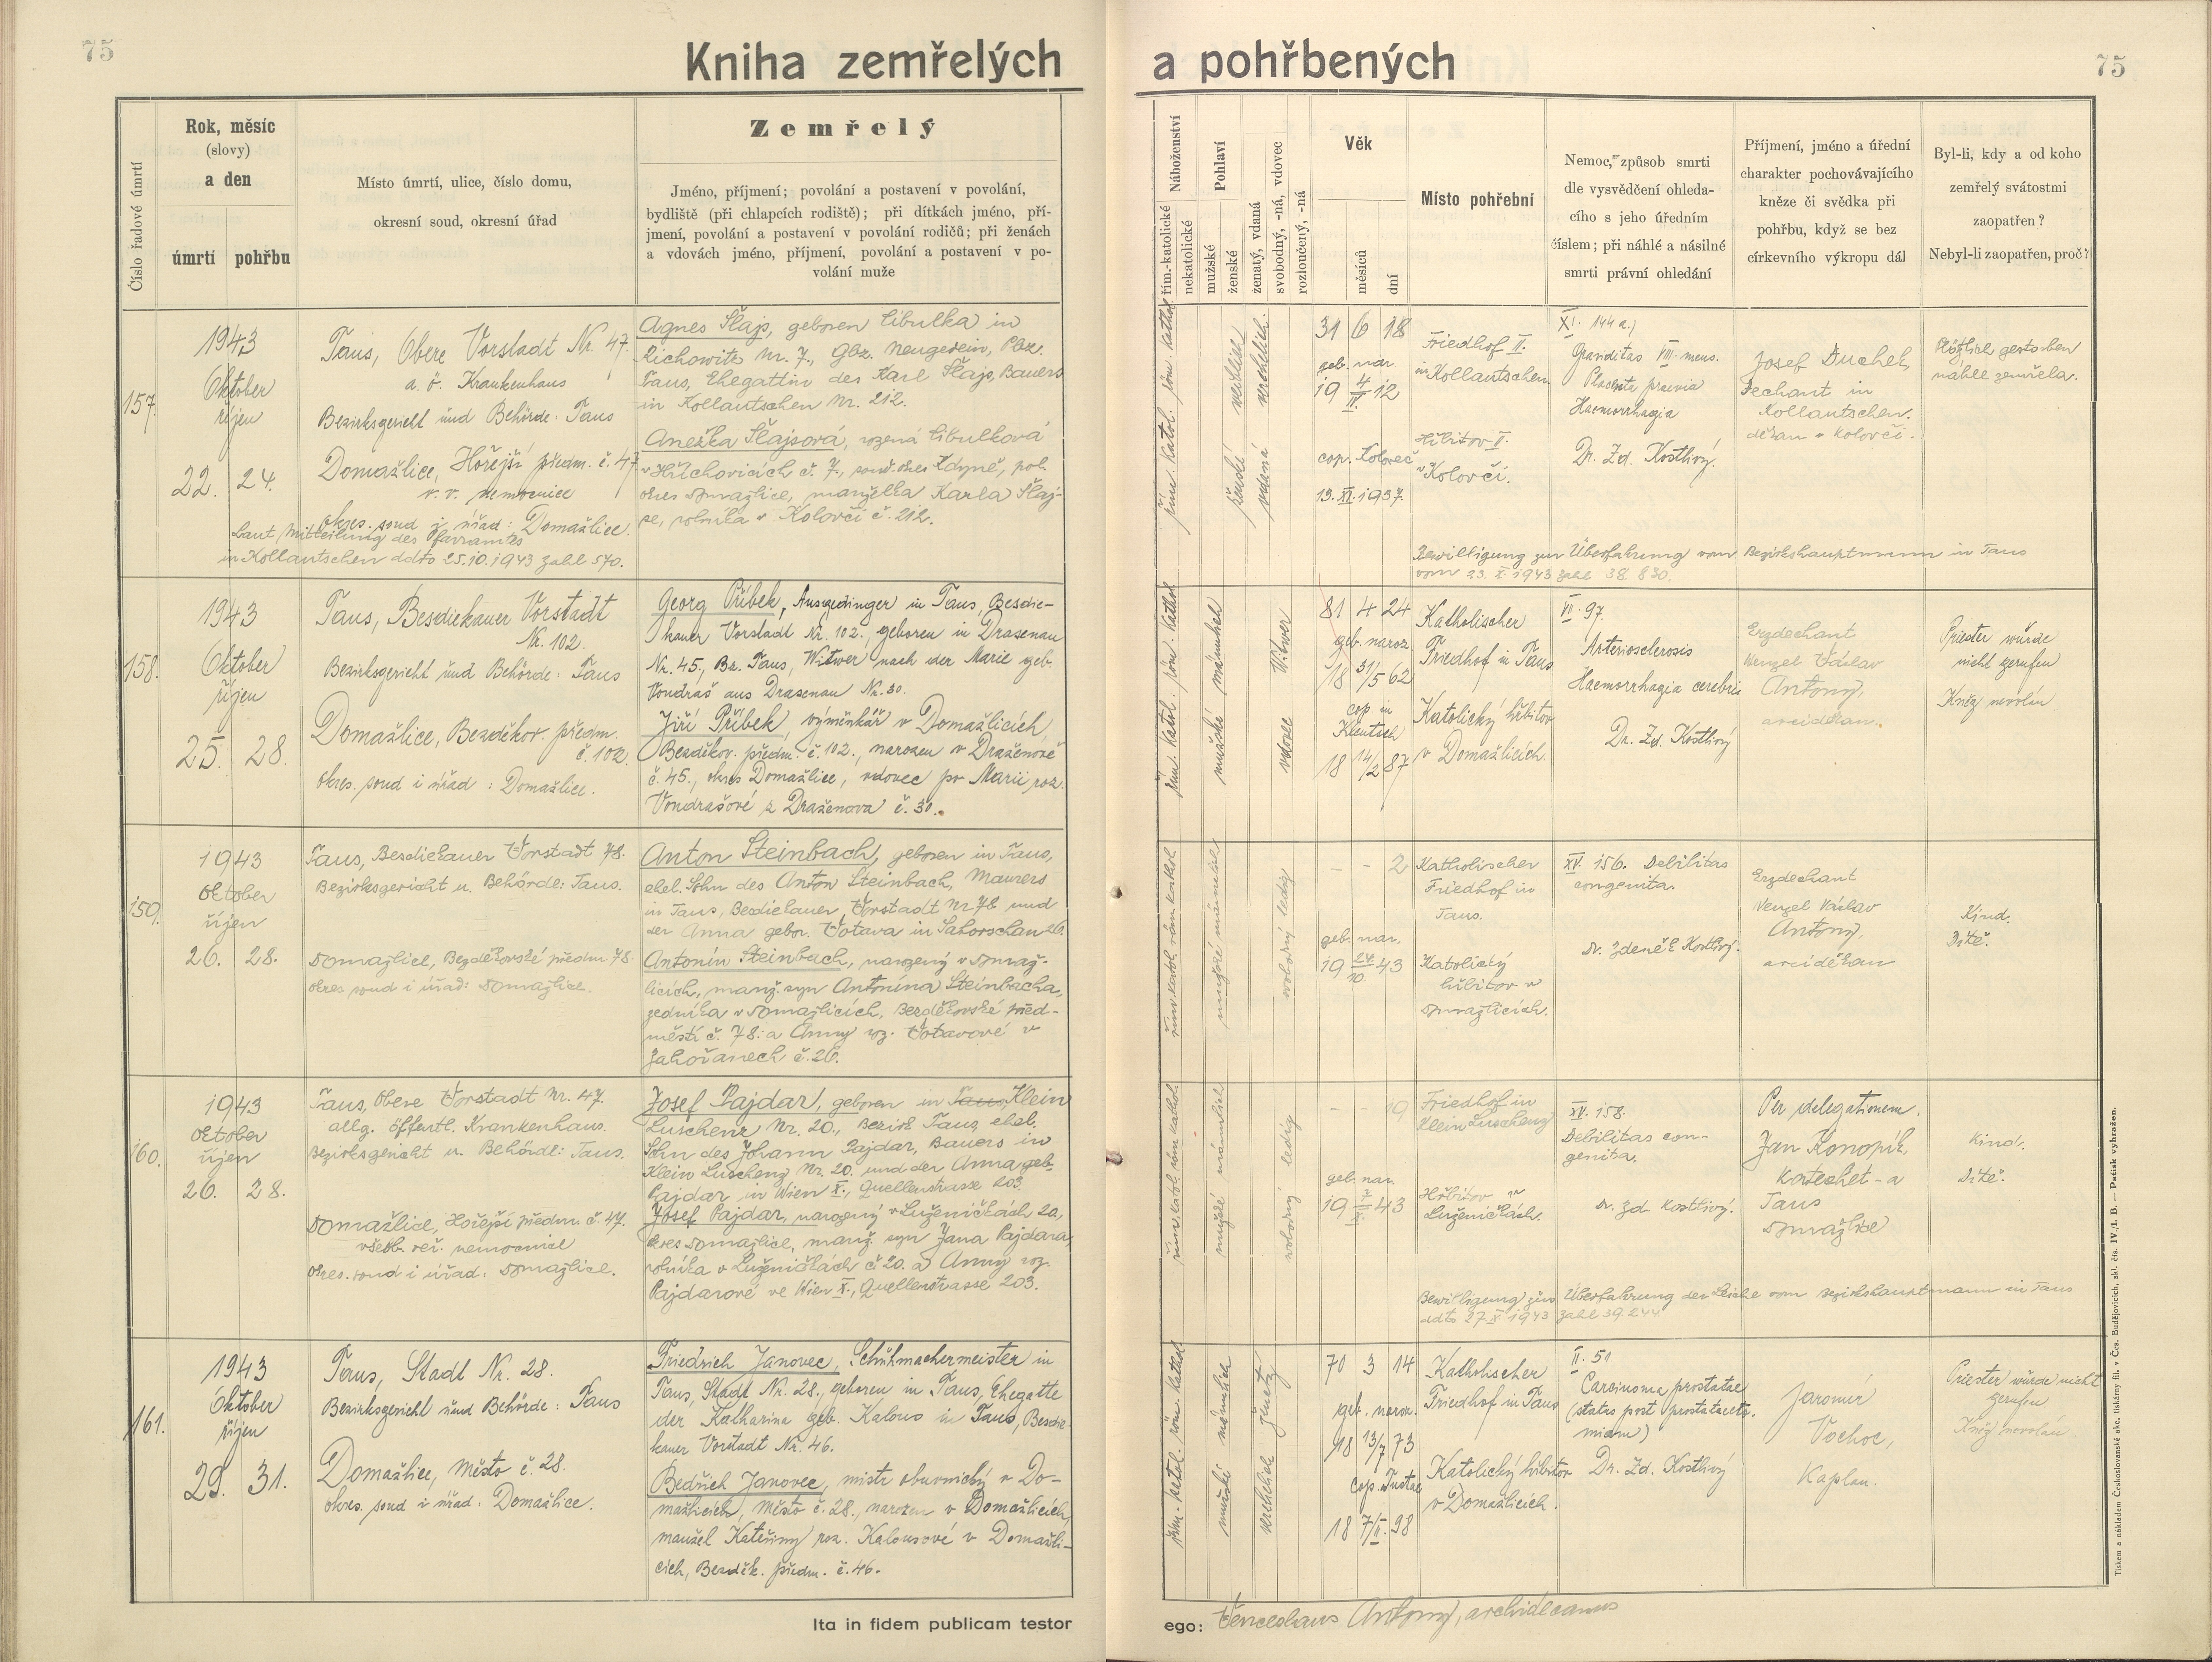 75
Kniha zemřelých
a pohřbených
75
Číslo řadové úmrtí
Rok, měsíc
(slovy)
a den
úmrtí
pohřbu
Místo úmrtí, ulice, číslo domu,
okresní soud, okresní úřad
Zemřelý
Jméno, příjmení; povolání a postavení v povolání,
bydliště (při chlapcích rodiště); při dítkách jméno, pří-
jmení, povolání a postavení v povolání rodičů; při ženách
a vdovách jméno, příjmení, povolání a postavení v po-
volání muže
Náboženství
řím.-katolické
nekatolické
Pohlaví
mužské
ženské
ženatý, vdaná
svobodný, -ná, vdovec
rozloučený, -ná
Věk
měsíců
dní
Místo pohřební
Nemoc, způsob smrti
dle vysvědčení ohleda-
cího s jeho úředním
číslem; při náhlé a násilné
smrti právní ohledání
Příjmení, jméno a úřední
charakter pochovávajícího
kněze či svědka při
pohřbu, když se bez
církevního výkropu dál
Byl-li, kdy a od koho
zemřelý svátostmi
zaopatřen?
Nebyl-li zaopatřen, proč?
157.
1943
Oktober
říjen
22. 24.
Taus, Obere Vorstadt Nr. 47.
a. ö. Krankenhaus
Bezirksgericht und Behörde: Taus
Domažlice, Hořejší předm. č. 47
v. v. nemocnice
okres. soud i úřad: Domažlice.
Laut Mitteilung des Pfarramtes
in Kollautschen ddto 25.10.1943 Zahl 570.
Agnes Šlajs, geboren Cibulka in
Richowitz Nr. 7., Gbz. Neugedein, Pbz.
Taus, Ehegattin des Karl Šlajs, Bauers
in Kollautschen Nr. 212.
Anežka Šlajsová, rozená Cibulková
v Hříchovicích č. 7., soud. okres Kdyně, pol.
okres Domažlice, manželka Karla Šlaj-
se, rolníka v Koločči č. 212.
řím. katol. röm. kathol.
ženské weiblich
vdaná verehelicht.
31 6 18
geb. nar.
19 4/IV. 12
cop. Koloveč
13. XI. 1937.
Friedhof II.
in Kollautschen.
Hřbitov II.
v Kolovči.
XI. 144 a.)
Graviditas VIII. mens.
Placenta praevia
Haemorrhagia
Dr. Zd. Kostlivý.
Josef Duchek,
Dechant in
Kollautschen.
děkan v Kolovči.
Plötzlich gestorben
náhle zemřela.
Bewilligung zur Überfahrung vom Bezirkshauptmann in Taus
vom 23. X. 1943 Zahl 38.830.
158.
1943
Oktober
říjen
25. 28.
Taus, Besdiekauer Vorstadt
Nr. 102.
Bezirksgericht und Behörde: Taus
Domažlice, Bezděkov. předm.
č. 102.
okres. soud i úřad: Domažlice.
Georg Příbek, Ausgedinger in Taus, Besdie-
kauer Vorstadt Nr. 102., geboren in Drasenau
Nr. 45., Bz. Taus, Witwer nach der Marie geb.
Vondraš aus Drasenau Nr. 30.
Jiří Příbek, výměnkář v Domažlicích,
Bezděkov. předm. č. 102., narozen v Draženově
č. 45., okres Domažlice, vdovec po Marii roz.
Vondrašové z Draženova č. 30.
řím. katol. röm. kathol.
mužské männlich
vdovec Witwer
81 4 24
geb. naroz.
18 31/5 62
cop. in
Klentsch
18 14/2 87
Katholischer
Friedhof in Taus
Katolický hřbitov
v Domažlicích.
VII. 97.
Arteriosclerosis
Haemorrhagia cerebri
Dr. Zd. Kostlivý
Erzdechant
Wenzel Václav
Antony,
arciděkan.
Priester wurde
nicht gerufen
Kněz nevolán
159.
1943
Oktober
říjen
26. 28.
Taus, Besdiekauer Vorstadt 78.
Bezirksgericht u. Behörde: Taus.
Domažlice, Bezděkovské předm. 78.
okres. soud i úřad: Domažlice.
Anton Steinbach, geboren in Taus,
ehel. Sohn des Anton Steinbach, Maurers
in Taus, Besdiekauer Vorstadt Nr 78 und
der Anna gebor. Votava in Sahorschan 26.
Antonín Steinbach, narozený v Domaž-
licích, manž. syn Antonína Steinbacha,
zedníka v Domažlicích, Bezděkovské před-
městí č. 78. a Anny roz. Votavové v
Zahořanech č. 26.
řím. katol. röm. kathol.
mužské männlich
svobodný ledig
- - 2
geb. nar.
19 24/10. 43
Katholischer
Friedhof in
Taus.
Katolický
hřbitov v
Domažlicích.
XV. 156. Debilitas
congenita.
Dr. Zdeněk Kostlivý.
Erzdechant
Wenzel Václav
Antony,
arciděkan
Kind.
Dítě.
160.
1943
Oktober
říjen
26. 28.
Taus, Obere Vorstadt Nr. 47.
allg. öffentl. Krankenhaus.
Bezirksgericht u. Behörde: Taus.
Domažlice, Hořejší předm. č. 47.
všeob. veř. nemocnice
Okres. soud i úřad: Domažlice.
Josef Pajdar, geboren in Taus, Klein
Luschenz Nr. 20., Bezirk Taus, ehel.
Sohn des Johann Pajdar, Bauers in
Klein Luschenz Nr. 20. und der Anna geb.
Pajdar in Wien X., Quellenstrasse 203.
Josef Pajdar, narozený v Luženičkách 20,
okres Domažlice, manž. syn Jana Pajdara,
rolníka v Luženičkách č 20. a Anny roz.
Pajdarové ve Wien X., Quellenstrasse 203.
řím. katol. röm. kathol.
mužské männlich
svobodný ledig
- - 19
geb. nar.
19 7/X. 43
Friedhof in
Klein Luschenz
Hřbitov v
Luženičkách.
XV. 158.
Debilitas con-
genita.
Dr. Zd. Kostlivý.
Per delegationem.
Jan Konopík,
Katechet-a
Taus
Domažlice
Kind.
Dítě.
Bewilligung zur Überfahrung der Leiche vom Bezirkshauptmann in Taus
ddto 27. X. 1943 Zahl 39.244
161.
1943
Oktober
říjen
29. 31.
Taus, Stadt Nr. 28.
Bezirksgericht und Behörde: Taus
Domažlice, Město č. 28.
okres. soud i úřad: Domažlice.
Friedrich Janovec, Schuhmachermeister in
Taus, Stadt Nr. 28., geboren in Taus, Ehegatte
der Katharina geb. Kalous in Taus, Besdie-
kauer Vorstadt Nr. 46.
Bedřich Janovec, mistr obuvnický v Do-
mažlicích, Město č. 28., narozen v Domažlicích,
manžel Kateřiny roz. Kalousové v Domažli-
cích, Bezděk. předm. č. 46.
řím. katol. röm. kathol.
mužské männlich
verehelicht ženatý
70 3 14
geb. naroz.
18 13/7 73
cop.
18 7/II. 98
Katholischer
Friedhof in Taus
Katolický hřbitov
v Domažlicích.
II. 51
Carcinoma prostatae
(status post prostatecto-
miam)
Dr. Zd. Kostlivý
Jaromír
Vochoc,
Kaplan.
Priester wurde nicht
gerufen
Kněz nevolán.
Ita in fidem publicam testor
ego: Venceslaus Antony, archidecanus
Tiskem a nákladem Československé akc. tiskárny fil. v Čes. Budějovicích, skl. čís. IV./1. B. — Patisk vyhražen.